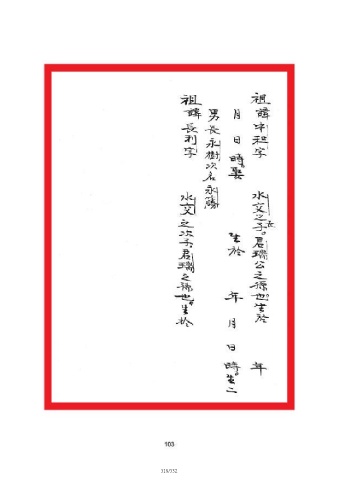 祖諱中和字 水文之長子君瑞公之孫也生於 年
月 日 時娶 生於 年 月 日 時生二
男長永樹次名永勝
祖諱長利字 水文之次子君瑞之孫也生於
103
318/352